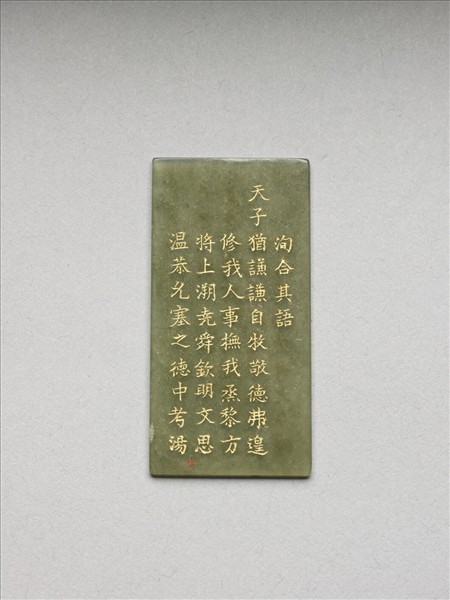 洵合其語
天子猶謙謙自牧敬德弗遑
修我人事撫我烝黎方
將上溯堯舜欽明文思
温恭允塞之德中考湯